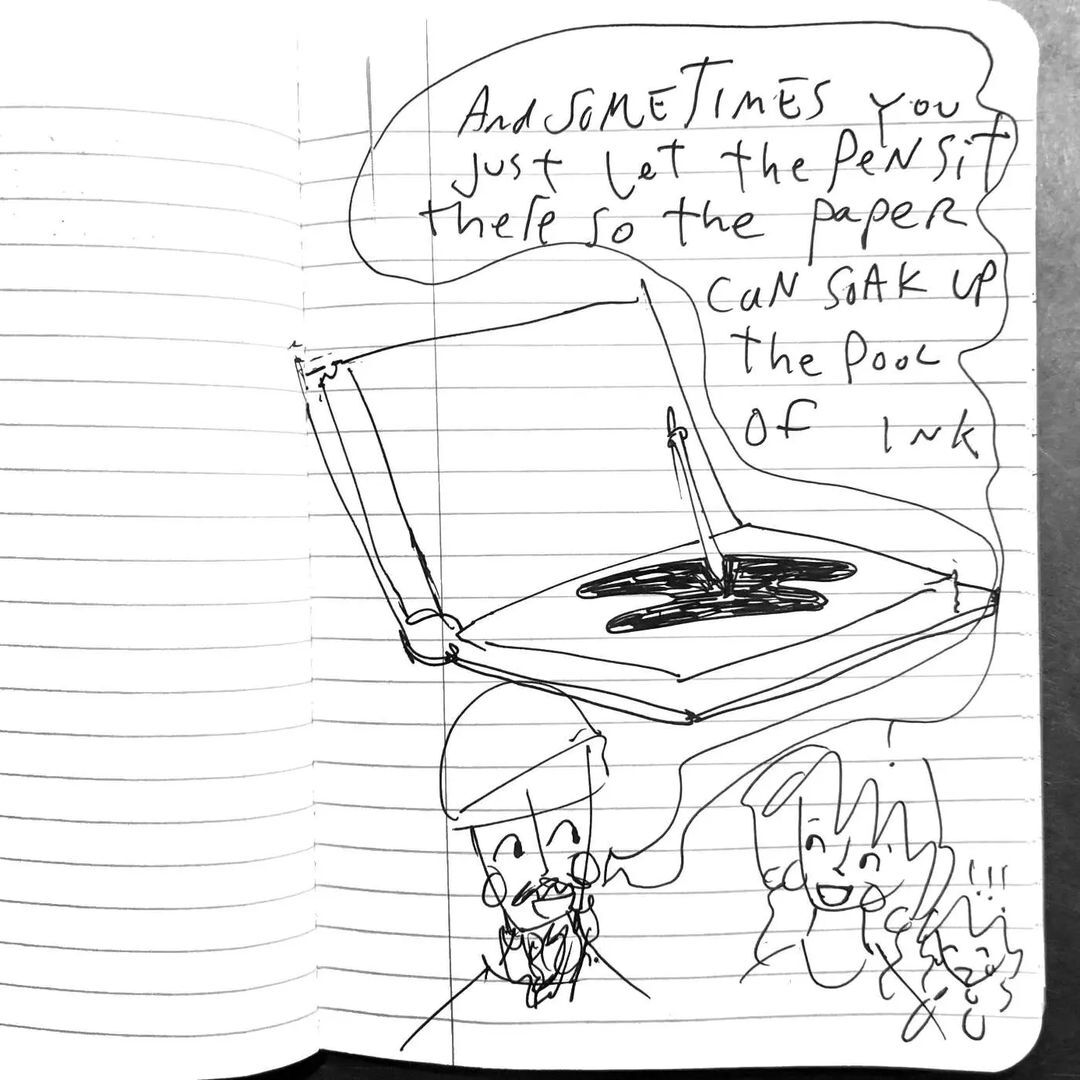 And SOMETIMES YOU
JUST LET the PEN SIT
there so the PAPER
CAN SOAK UP
the POOL
OF INK
!!!